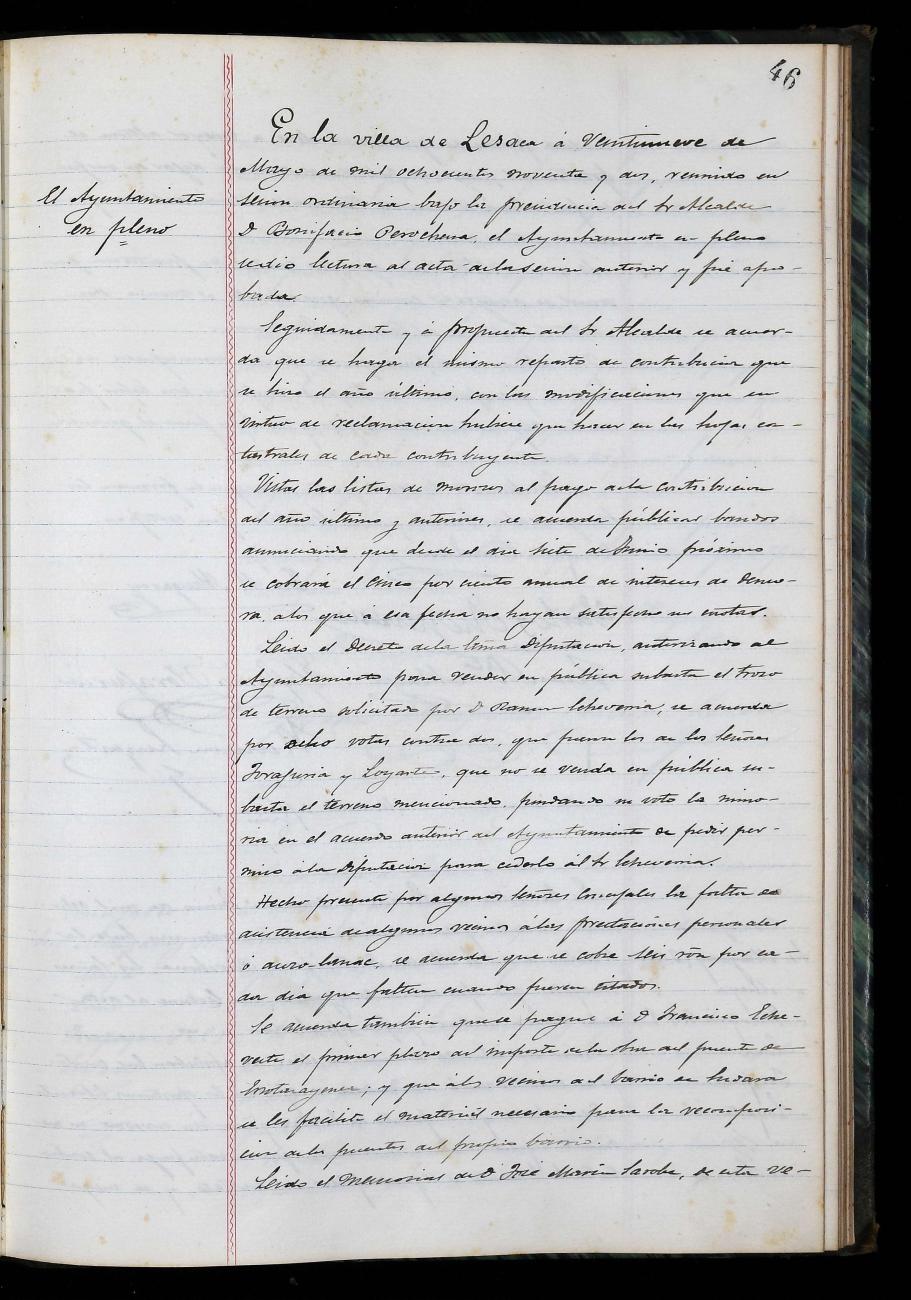 46
En la villa de Lesaca á Veintinueve de
Mayo de mil ochocientos noventa y dos, reunido en
El Ayuntamiento
en pleno
sesion ordinaria bajo la presidencia del Sr Alcalde
D Bonifacio Perochena, el Ayuntamiento en pleno
se dió lectura al acta de la sesion anterior y fué apro-
bada.
Seguidamente y á propuesta del Sr Alcalde se acuer-
da que se haga el mismo reparto de contribucion que
se hizo el año último, con las modificaciones que en
virtud de reclamacion hubiere que hacer en las hojas ca-
tastrales de cada contribuyente.
Vistas las listas de morosos al pago de la contribucion
del año último y anteriores, se acuerda públicar bandos
anunciando que desde el dia siete de Junio próximo
se cobrará el cinco por ciento anual de intereses de demo-
ra, alos que á esa fecha no hayan satisfecho sus cuotas.
Leido el Decreto de la Exma Diputacion, autorizando al
Ayuntamiento para vender en pública subasta el trozo
de terreno solicitado por D Ramon Echeverria, se acuerda
por ocho votos contra dos, que fueron los de los Señores
y Loyarte, que no se venda en pública su-
basta el terreno mencionado, fundando su voto la mino-
ria en el acuerdo anterior del Ayuntamiento de pedir per-
miso ála Diputacion para cederlo ál Sr Echeverria.
Hecho presente por algunos Señores Concejales la falta de
asistencia de algunos vecinos álas prestaciones personales
ó auzo-lanac, se acuerda que se cobre seis rón por ca-
da dia que falten cuando fueren citados.
Se acuerda tambien que se pague á D Francisco Eche-
veste el primer plazo del importe de la obra del puente de
; y que álos vecinos del barrio de
se les facilite el material necesario para la recomposi-
cion delos puentes del propio barrio.
Leido el Memorial de D José Maria Sarobe, de esta ve-